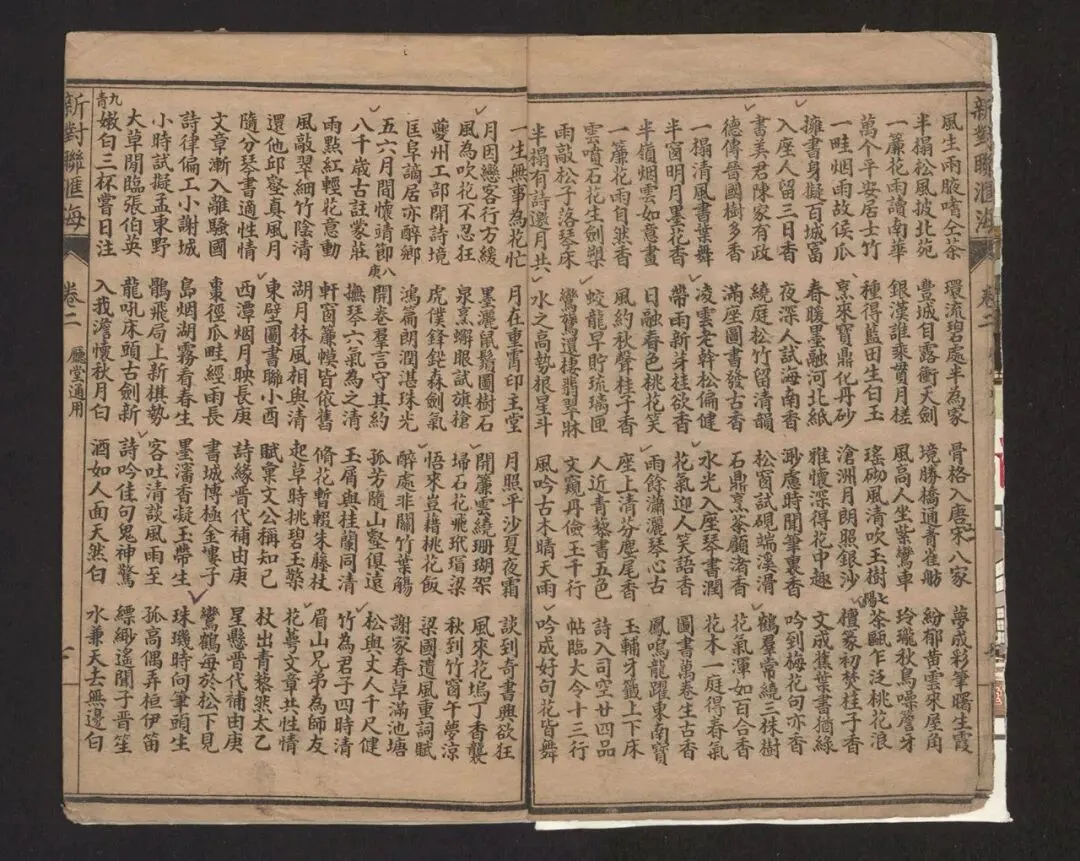 新對聯匯海 卷二
風生兩腋嗜仝茶 環流碧處半為家 骨格入唐宋八家 夢成彩筆曙生霞
半榻松風披北苑 豐城目露衝天劍 境勝橋通青雀舫 紛郁黃雲來屋角
一簾花雨讀南華 銀漢誰乘貫月槎 風高人坐紫鸞車 玲瓏秋鳥噪簷牙
萬個平安居士竹 種得藍田生白玉 瑤砌風清吹玉樹 七陽 茶甌乍泛桃花浪
一畦烟雨故侯瓜 烹來寶鼎化丹砂 滄洲月朗照銀沙 檀篆初焚桂子香
擁書身擬百城富 春暖墨融河北紙 雅懷深得花中趣 文成蕉葉書猶綠
入座人留三日香 夜深人試海南香 渺慮時聞筆裏香 吟到梅花句亦香
書美君陳家有政 繞庭松竹留清韻 松窗試硯端溪滑 鶴羣常繞三株樹
德傳晉國樹多香 滿座圖書發古香 石鼎烹茶顧渚香 花氣渾如百合香
一榻清風書葉舞 凌雲老幹松偏健 水光入座琴書潤 花木一庭得春氣
半窗明月墨花香 帶雨新芽桂欲香 花氣迎人笑語香 圖書萬卷生古香
半嶺烟雲如意畫 日融春色桃花笑 雨餘瀟灑琴心古 鳳鳴龍躍東南寶
一簾花雨自然香 風約秋聲桂子香 座上清芬麈尾香 玉輔牙籤上下床
雲噴石花生劍槊 蛟龍早貯琉璃匣 人近青藜書五色 詩入司空廿四品
雨敲松子落琴床 鸞鷟還棲翡翠牀 文窺丹儉玉千行 帖臨大令十三行
半榻有詩邀月共 水之高勢根星斗 風吟古木晴天雨 吟成好句花皆舞
一生無事為花忙 月在重霄印玉堂 月照平沙夏夜霜 談到奇書興欲狂
月因戀客行方緩 墨灑鼠鬚圖樹石 開簾雲繞珊瑚架 風來花塢丁香襲
風為吹花不忍狂 泉烹蟹眼試旗槍 埽石花飛玳瑁梁 秋到竹窗午夢涼
夔州工部開詩境 虎僕鋒鈆森劍氣 悟來豈藉桃花飯 梁國遺風重詞賦
匡阜謫居亦醉鄉 鴻扁朗潤湛珠光 醉處非關竹葉觴 謝家春草滿池塘
五六月間懷靖節 八庚 開卷羣言守其約 孤芳隨山壑復遠 松與丈人千尺健
八千歲古註蒙莊 撫琴六氣為之清 玉屑與桂蘭同清 竹為君子四時清
雨點紅輕花意動 軒窗簾幙皆依舊 脩花暫輟朱藤杖 眉山兄弟為師友
風敲翠細竹陰清 湖月林風相與清 起草時挑碧玉檠 花萼文章共性情
還他邱壑真風月 東壁圖書聯小酉 賦彙文公稱知己 杖出青藜然太乙
隨分琴書適性情 西潭烟月映長庚 詩緣晉代補由庚 星懸晉代補由庚
文章漸入離騷國 棗徑瓜畦經雨長 書城博極金婁子 鸞鶴每於松下見
詩律偏工小謝城 島烟湖霧看春生 墨瀋香凝玉帶生 珠璣時向筆頭生
小時試擬孟東野 鶻飛局上新棋勢 客吐清談風雨至 孤高偶弄桓伊笛
大草閒臨張伯英 龍吼床頭古劍新 詩吟佳句鬼神驚 縹緲遙聞子晉笙
九青 嫩曰三杯嘗日注 入我澹懷秋月白 酒如人面天然白 水兼天去無邊白
新對聯匯海 卷二 廳堂通用 七